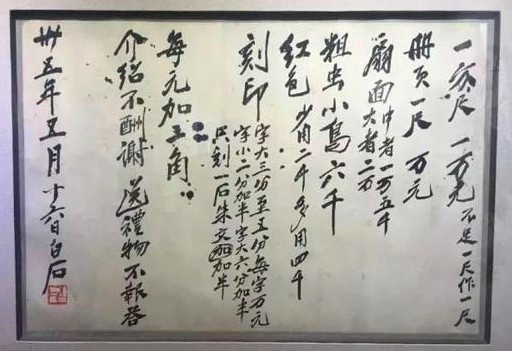 一方尺 一万元 不足一尺作一尺
册页一尺 万元
扇面 中者一万五千
大者二万
粗虫小鸟六千
红色 少用二千多用四千
刻印
字大三分至五分每字万元
字小二分加半字大六分加半
只刻一石朱文加半
每元加五角
介绍不酬谢 送禮物不報答
卅五年五月十六日白石